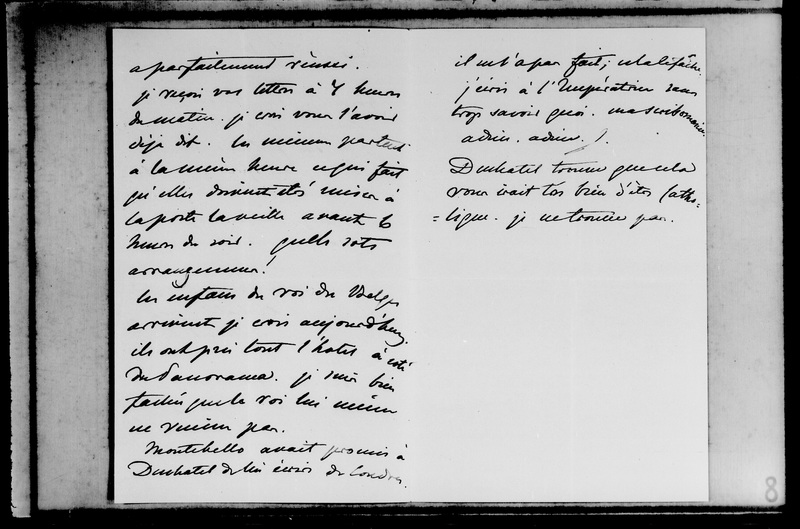 a parfaitement réussi.
je reçois vos lettres à 4 heures
du matin. je crois vous l'avoir
déja dit. les miennes partent
à la même heure ce qui fait
qu'elles doivent etre mises à
la poste la veille avant 6
heures du soir. quels sots
arrangemens!
les enfans du roi des Belges
arrivent je crois aujourd'huy.
ils ont pris tout l'hotel à coté
du Panorama. je suis bien
fachée que le roi lui même
ne vienne pas.
Montebello avait promis à
Duchatel de lui écrire de Londres.
il ne l'a pas fait; cela le fâche.
j'écris à l'Impératrice sans
trop savoir quoi.
adieu. adieu.
Duchatel trouve que cela
vous irait très bien d'être catho=
=lique. je ne trouve pas.
8